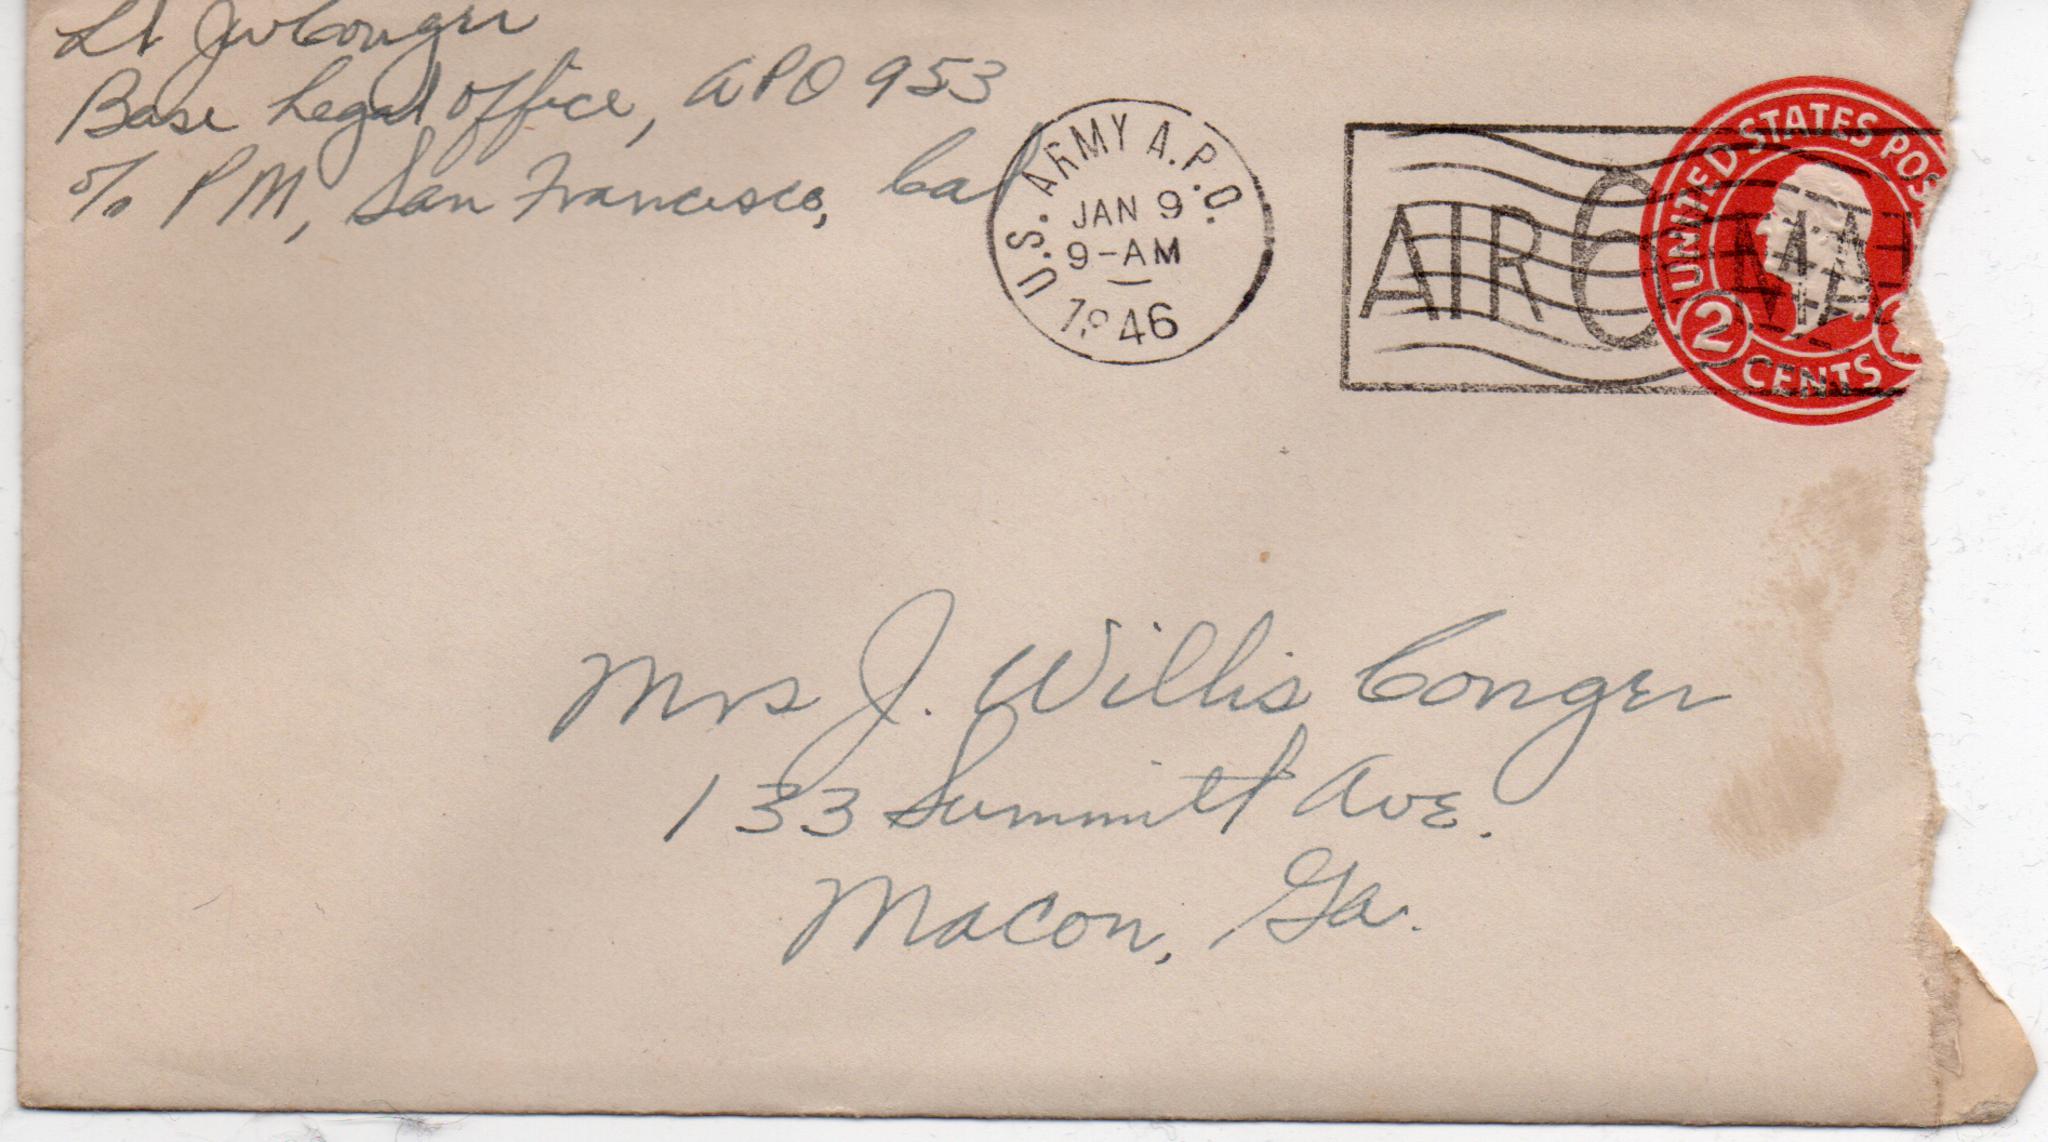 Lt JW Conger
Base Legal Office, APO 953
c/o PM, San Francisco, Cal
U.S. ARMY A.P.O.
JAN 9
9-AM
1946
AIR MAI
UNITED STATES POS
2 CENTS 2
Mrs J. Willis Conger
133 Summitt Ave.
Macon, Ga.